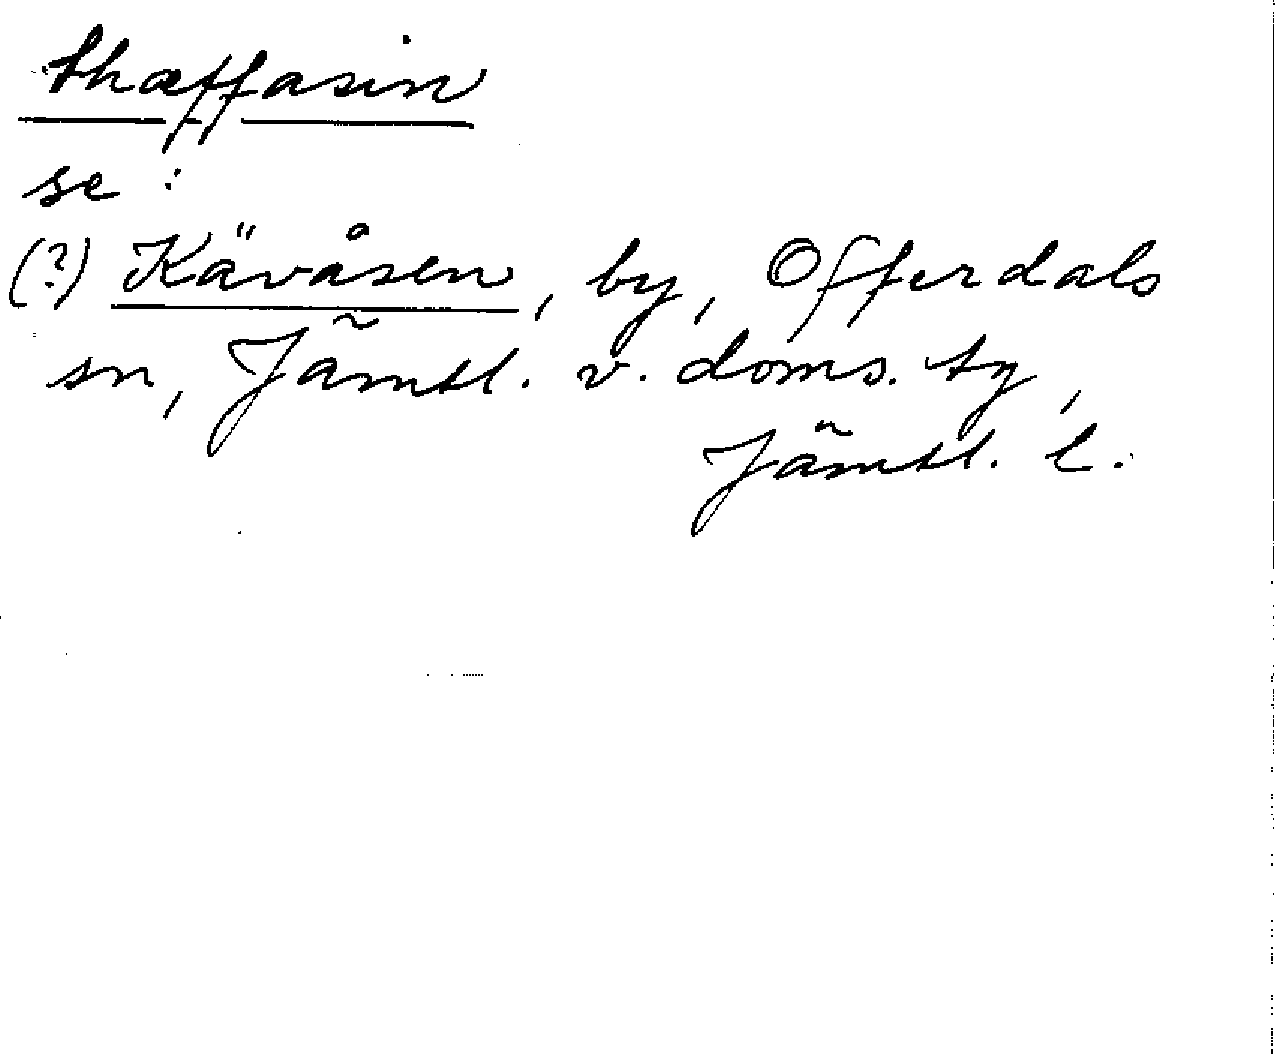 thæffasin
se:
(?) Kävåsen, by, Offerdals
sn, Jämtl. v. doms. tg,
Jämtl. l.